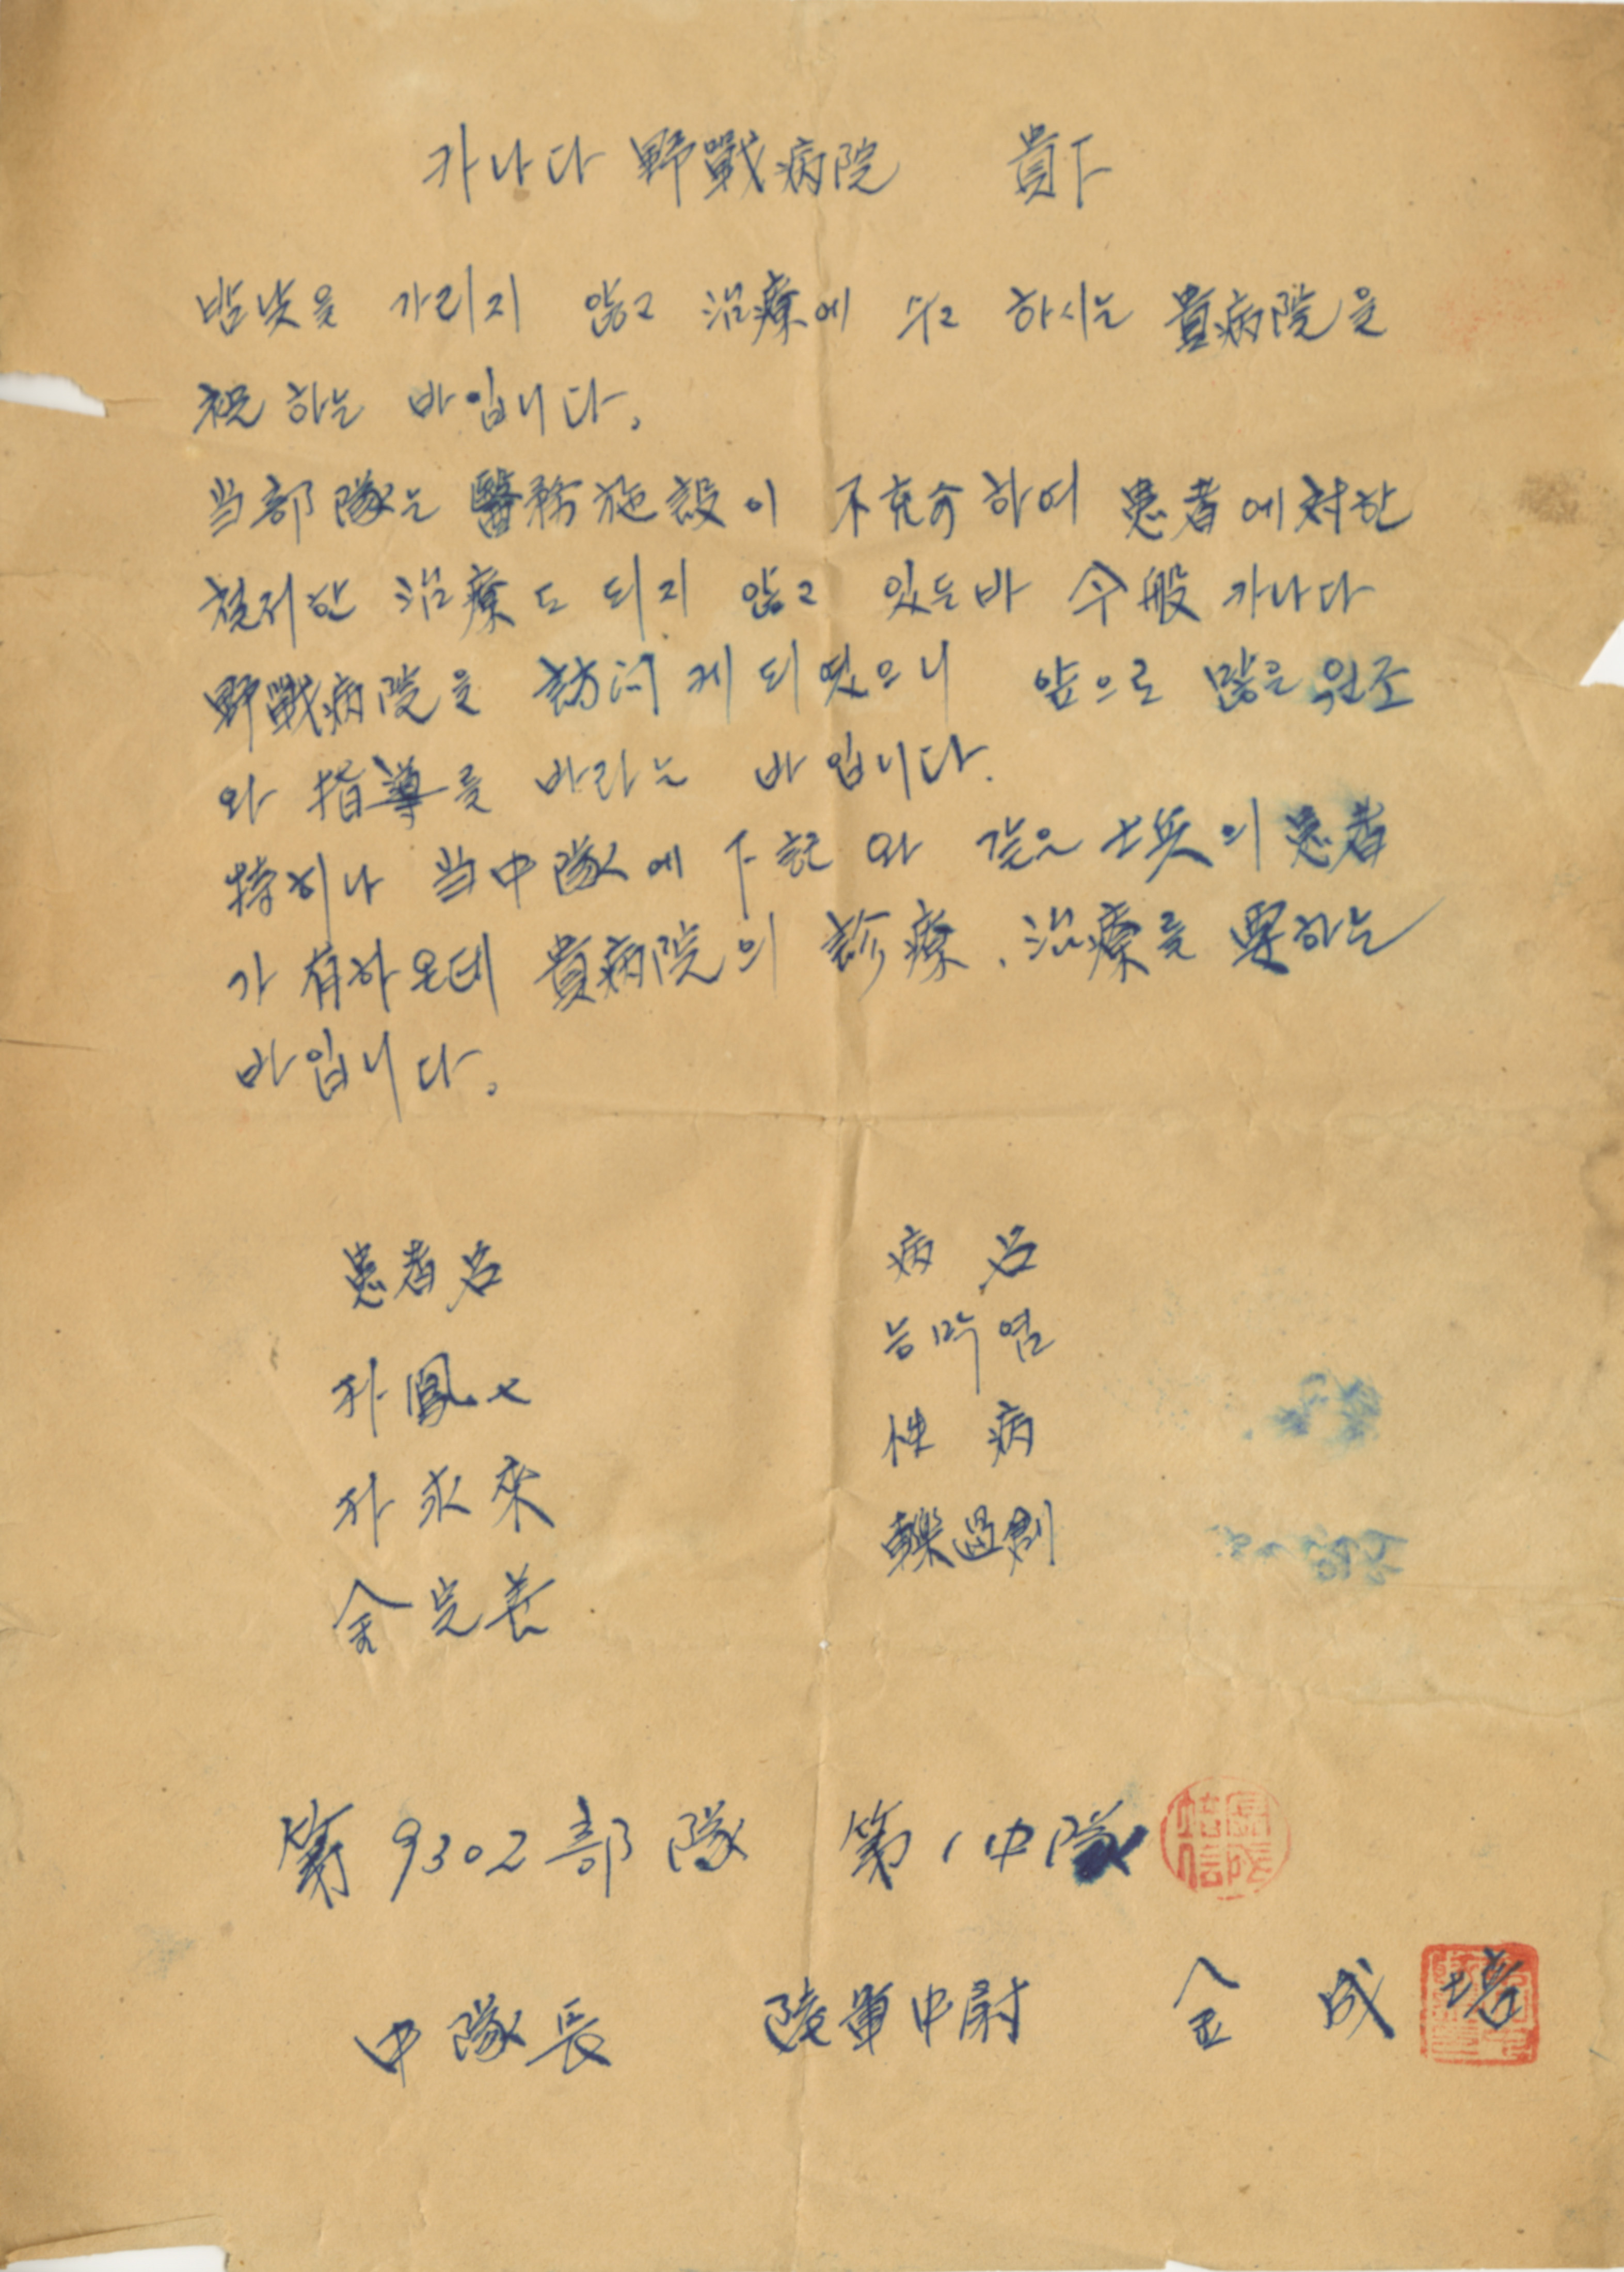 카나다 野戰病院 貴下
밤낮을 가리지 않고 治療에 수고 하시는 貴病院을
祝하는 바입니다.
当部隊는 醫務施設이 不充分하여 患者에対한
철저한 治療도 되지 않고 있는바 今般 카나다
野戰病院을 訪问케 되였으니 앞으로 많은 원조
와 指導를 바라는 바입니다.
特히나 当中隊에 下記와 같은 士兵의 患者
가 有하온데 貴病院의 診療、治療를 要하는
바입니다.
患者名 病名
朴鳳七 능막염
朴求來 性病
金完善 轢過創
第9302部隊 第1中隊
中隊長 陸軍中尉 金成培